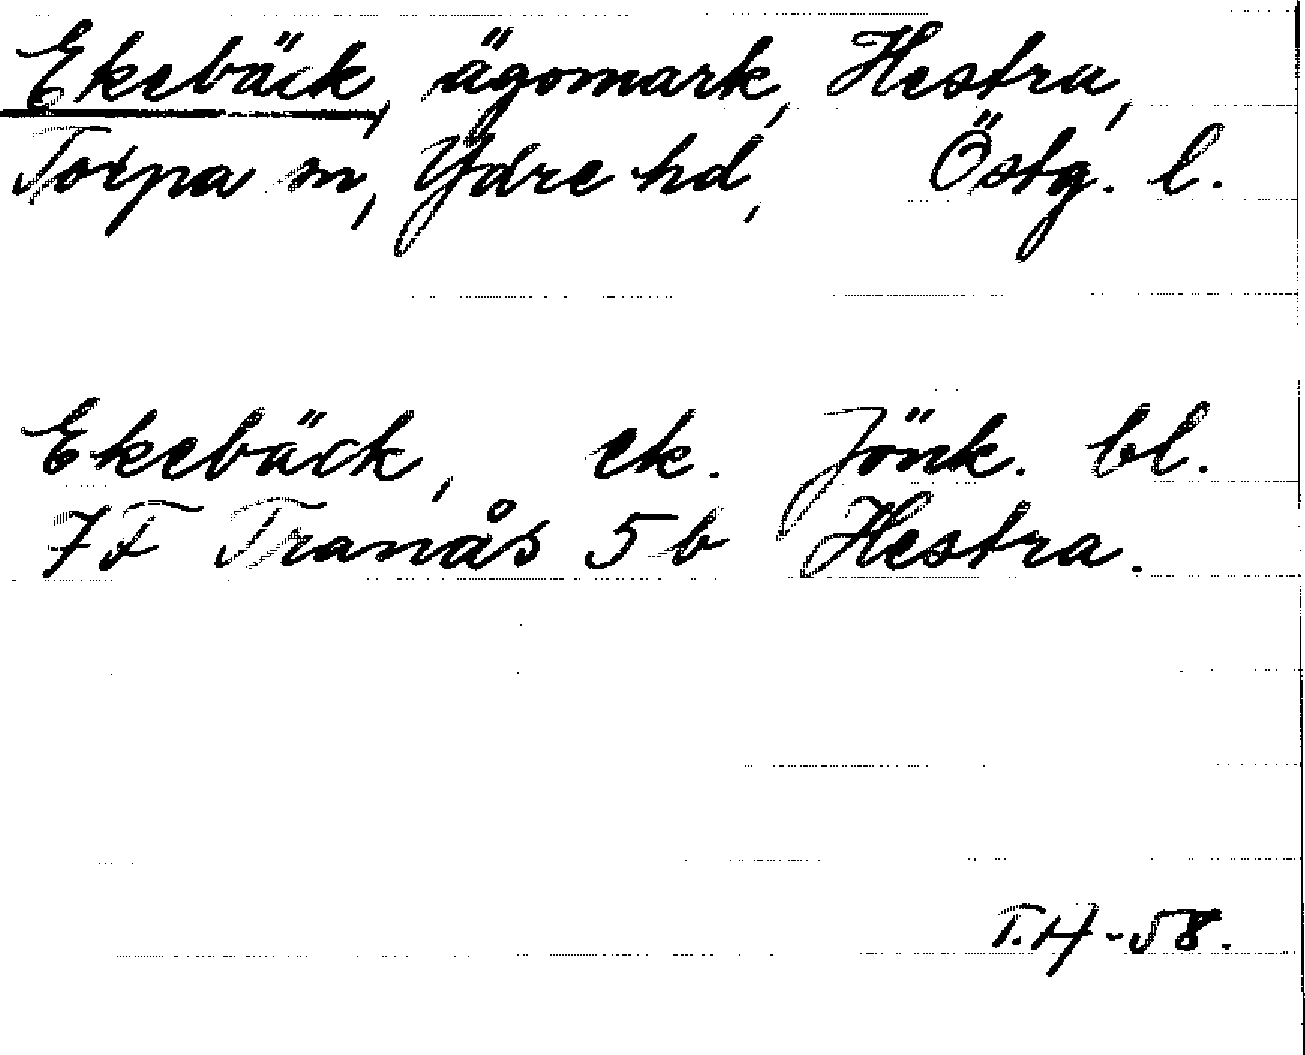 Ekebäck, ägomark, Hestra,
Torpa sn, Ydre hd, Östg. l.
Ekebäck, ek. Jönk. bl.
7F Tranås 5b Hestra.
T.H-58.